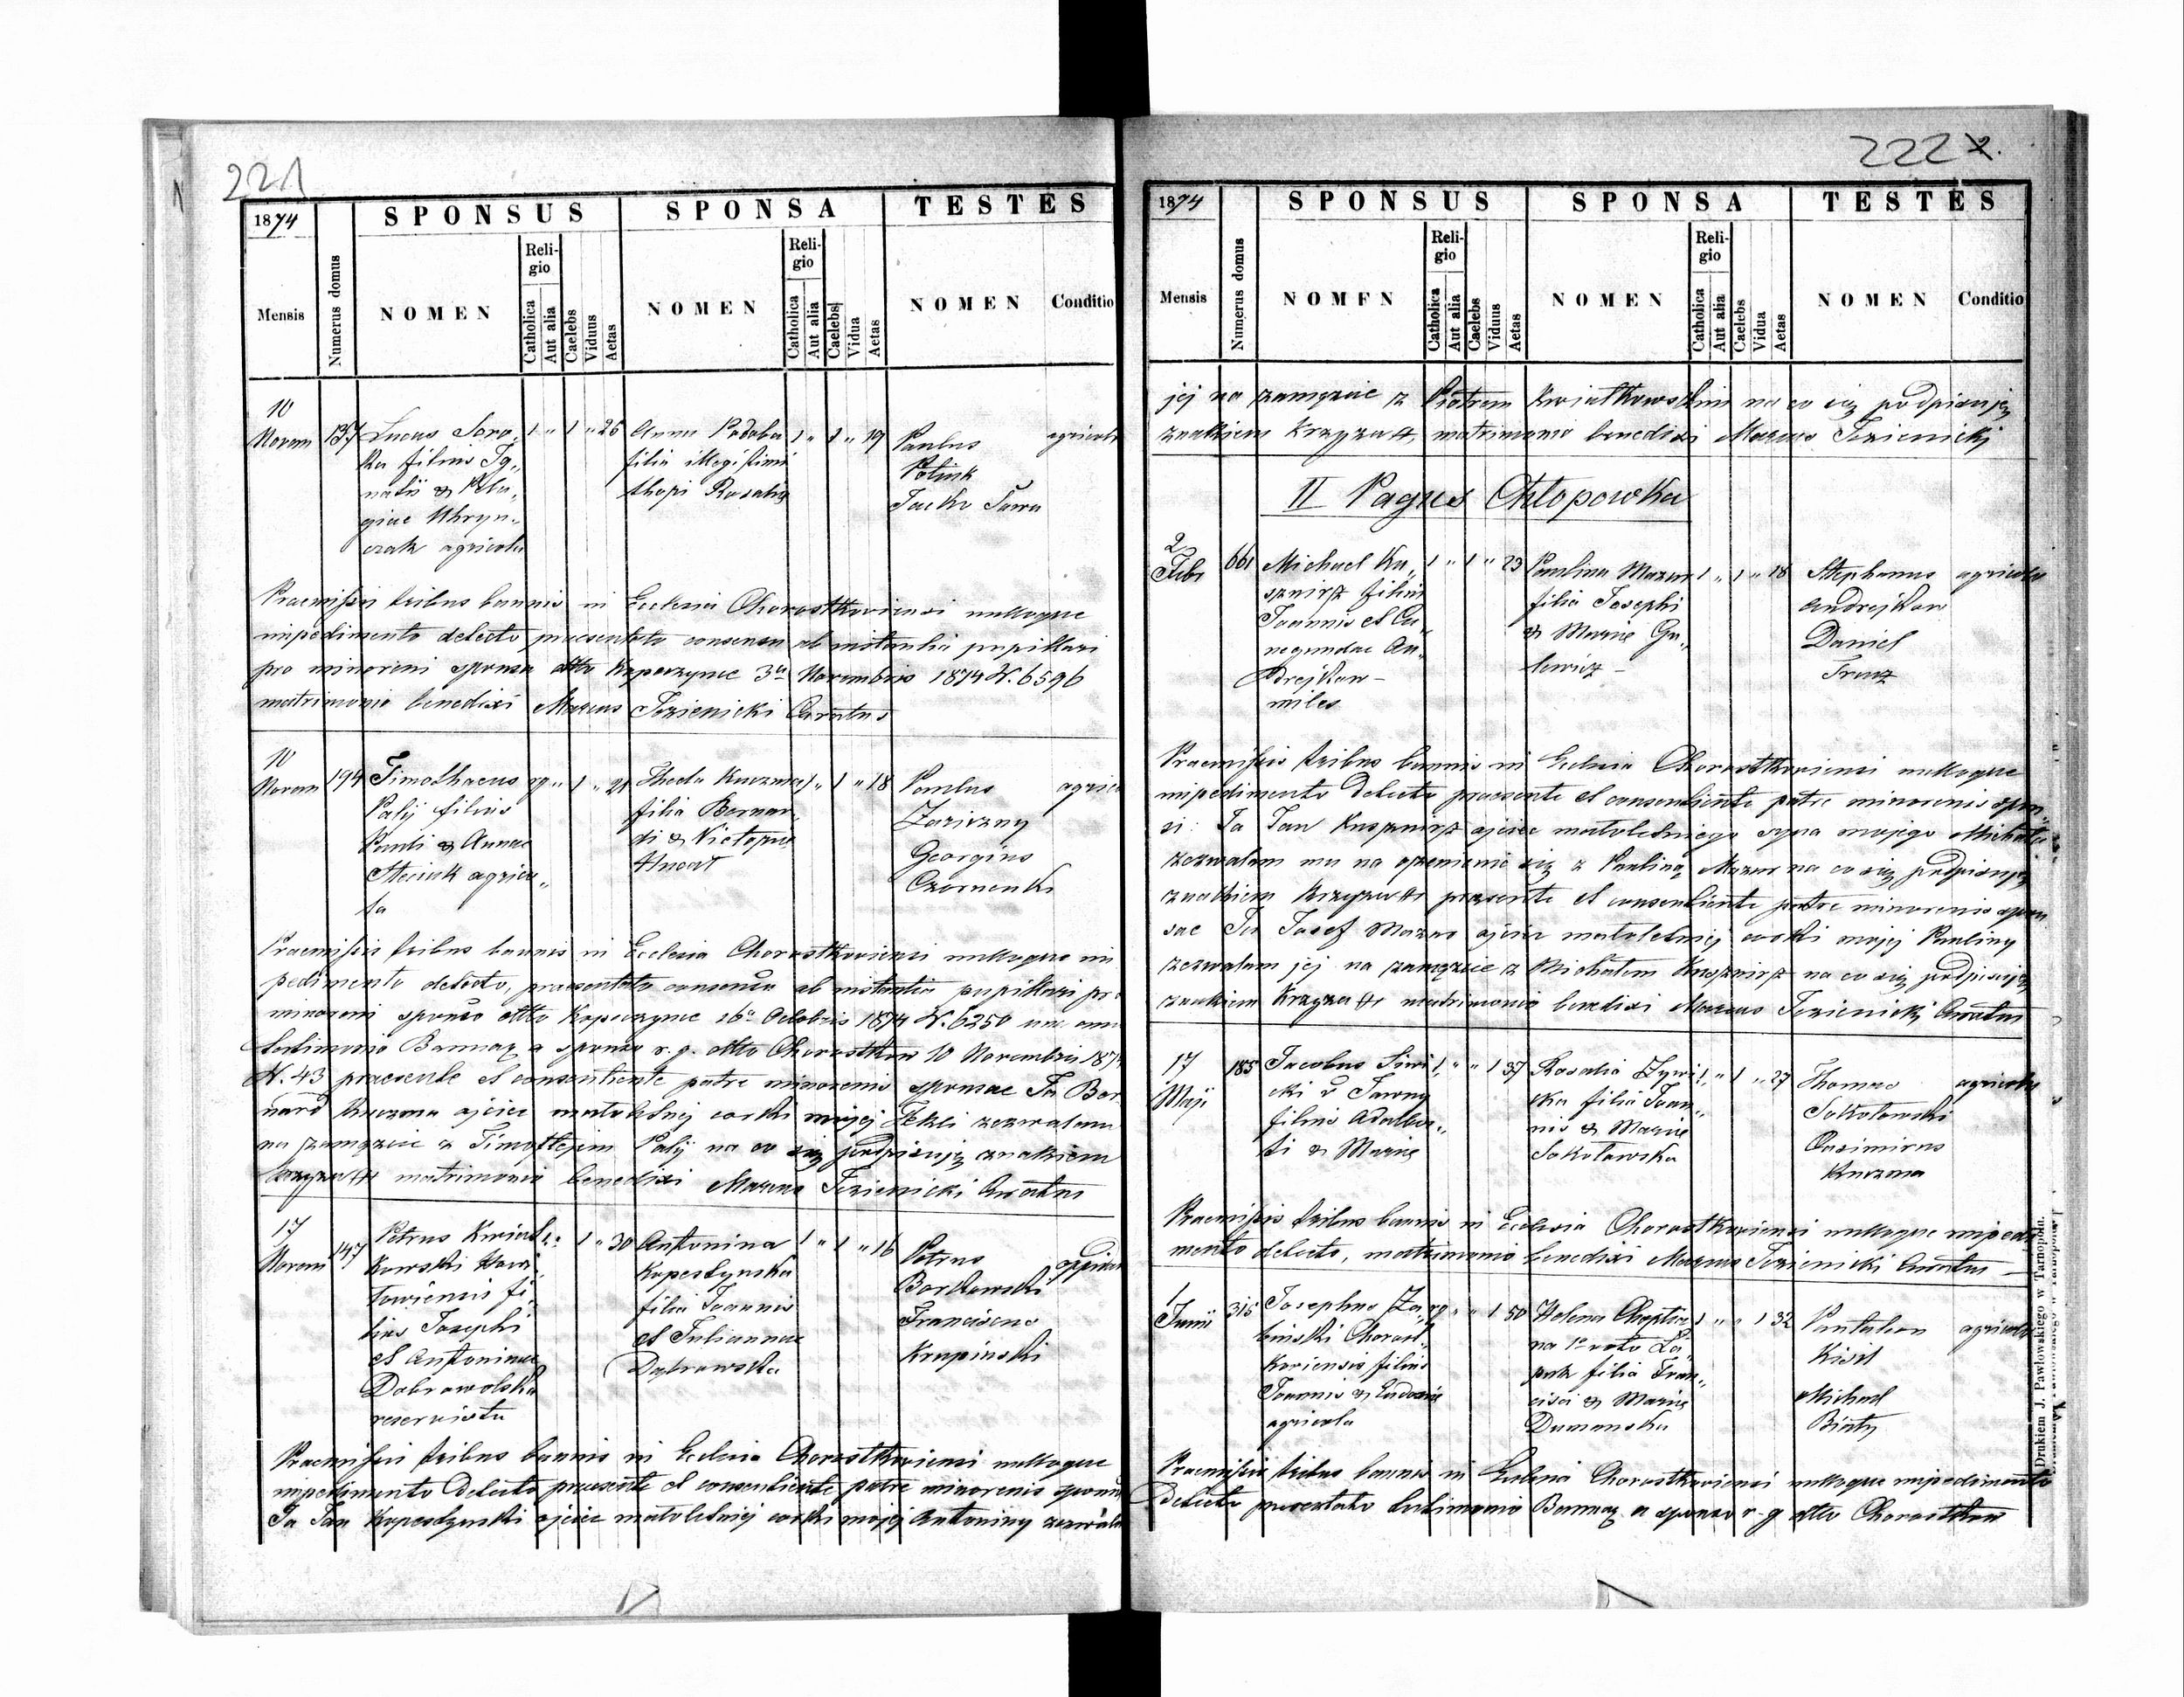 221
1874
SPONSUS
SPONSA
TESTES
Mensis
Numerus domus
NOMEN
Religio
Catholica
Aut alia
Caelebs
Viduus
Aetas
NOMEN
Religio
Catholica
Aut alia
Caelebs
Vidua
Aetas
NOMEN
Conditio
10 Novem
137
Lucas Soro„
ka filius Ig„
natii & Pela„
giae Uhryn„
czak agricola
1 „ 1 „ 26
Anna Podoba
filia illegitimi
thopi Rosalię
1 „ 1 „ 19
Paulus
Polink
Jacko Sawa
agricola
Praemissis tribus bannis in Ecclesia Chorostkoviensi nulloque
impedimento delecto praesentato consensu ab instantia pupillari
pro minoreni sponsa dtto Kopeczynce 3a Novembris 1874 N. 6596
matrimonio benedixi Marcus Jezienicki Curatus
10 Novem
194
Timothaeus
Palij filius
Pauli & Annae
Steciuk agrico„
la
rg „ 1 „ 21
Thecla Kuczma
filia Bernar
di & Victoriae
Hucat
1 „ 1 „ 18
Paulus
Zariczny
Georgius
Czornenki
agric
Praemissis tribus bannis in Ecclesia Chorostkoviensi nulloque im
pedimento delecto, praesentato consensu ab instantia pupillari pro
minoreni sponso dtto Kopeczynce 16a Octobris 1874 N. 6250
testimonio Bannaq a sponso r. g. dtto Chorostkow 10 Novembris 1874
N. 43 praesente et consentiente patre minorenis sponsae Ja Ber
nard Kuczma ojciec małoletnej corki mojej Tekli zezwalam
na zamęzcie z Timoftejem Palij na co się podpisuję znakiem
krzyza ++ matrimonio benedixi Marcus Jezienicki Curatus
17 Novem
147
Petrus Kwiat„
kowski
fi„
lius Josephi
et Antoninae
Dobrowolska
reservista
1 „ 1 „ 30
Antonina
Kopestynska
filia Joannis
et Juliannae
Dąbrowska
1 „ 1 „ 16
Petrus
Borkowski
Franciscus
Krupinski
oppidan
Praemissis tribus bannis in Ecclesia Chorostkoviensi nulloque
impedimento delecto praesente et consentiente patre minorenis sponsae
Ja Jan Kopestynski ojciec małoletniej corki mojej Antoniny zezwalam
222
1874
SPONSUS
SPONSA
TESTES
Mensis
Numerus domus
NOMEN
Religio
Catholica
Aut alia
Caelebs
Viduus
Aetas
NOMEN
Religio
Catholica
Aut alia
Caelebs
Vidua
Aetas
NOMEN
Conditio
jej na zamęzcie z Piotrem Kwiatkowskim na co się podpisuję
znakiem Krzyza ++ matrimonio benedixi Marcus Jezienicki
II Pagus Chłopowka
2 Febr
661
Michael Ku„
sznirz filius
Joannis et Cu„
negundae An„
drejkow —
miles
1 „ 1 „ 23
Paulina Mazur
filia Josephi
& Mariae Gu„
lewicz —
1 „ 1 „ 18
Stephanus
Andrejkow
Daniel
Franz
agricola
Praemissis tribus bannis in Ecclesia Chorostkoviensi nulloque
impedimento delecto praesente et consentiente patre minorenis spon„
si: Ja Jan Kusznirz ojciec małoletniego syna mojego Michała
zezwalam mu na ozenienie się z Pauliną Mazur na co się podpisuję
znakiem Krzyza ++ praesente et consentiente patre minorenis spon
sae Ja Josef Mazur ojciec małoletniej corki mojej Pauliny
zezwalam jej na zamęzcie z Michałem Kusznirz na co się podpisuję
znakiem Krzyza ++ matrimonio benedixi Marcus Jezienicki Curatus
17 Maji
185
Jacobus Siwi„
cki v Sawny
filius Adalber„
ti & Marię
1 „ „ 1 37
Rosalia Zywi
cka filia Joan„
nis & Marię
Sokołowska
1 „ 1 „ 27
Thomas
Sokołowski
Casimirus
Kuczma
agricola
Praemissis tribus bannis in Ecclesia Chorostkoviensi nulloque impedi
mento delecto, matrimonio benedixi Marcus Jezienicki Curatus —
1 Junii
315
Josephus Za„
binski Chorost„
koviensis filius
Joannis & Eudoxię
agricola
rg „ „ 1 50
Helena Choptia
na 1o voto Ła„
puk filia Fran„
cisci & Marię
Dumanska
1 „ „ 1 32
Pantaleon
Kisil
Michael
Biały
agricola
Praemissis tribus bannis in Ecclesia Chorostkoviensi nulloque impedimento
delecto praesentato testimonio Bannaq a sponso r. g dtto Chorostkow
Drukiem J. Pawłowskiego w Tarnopolu.